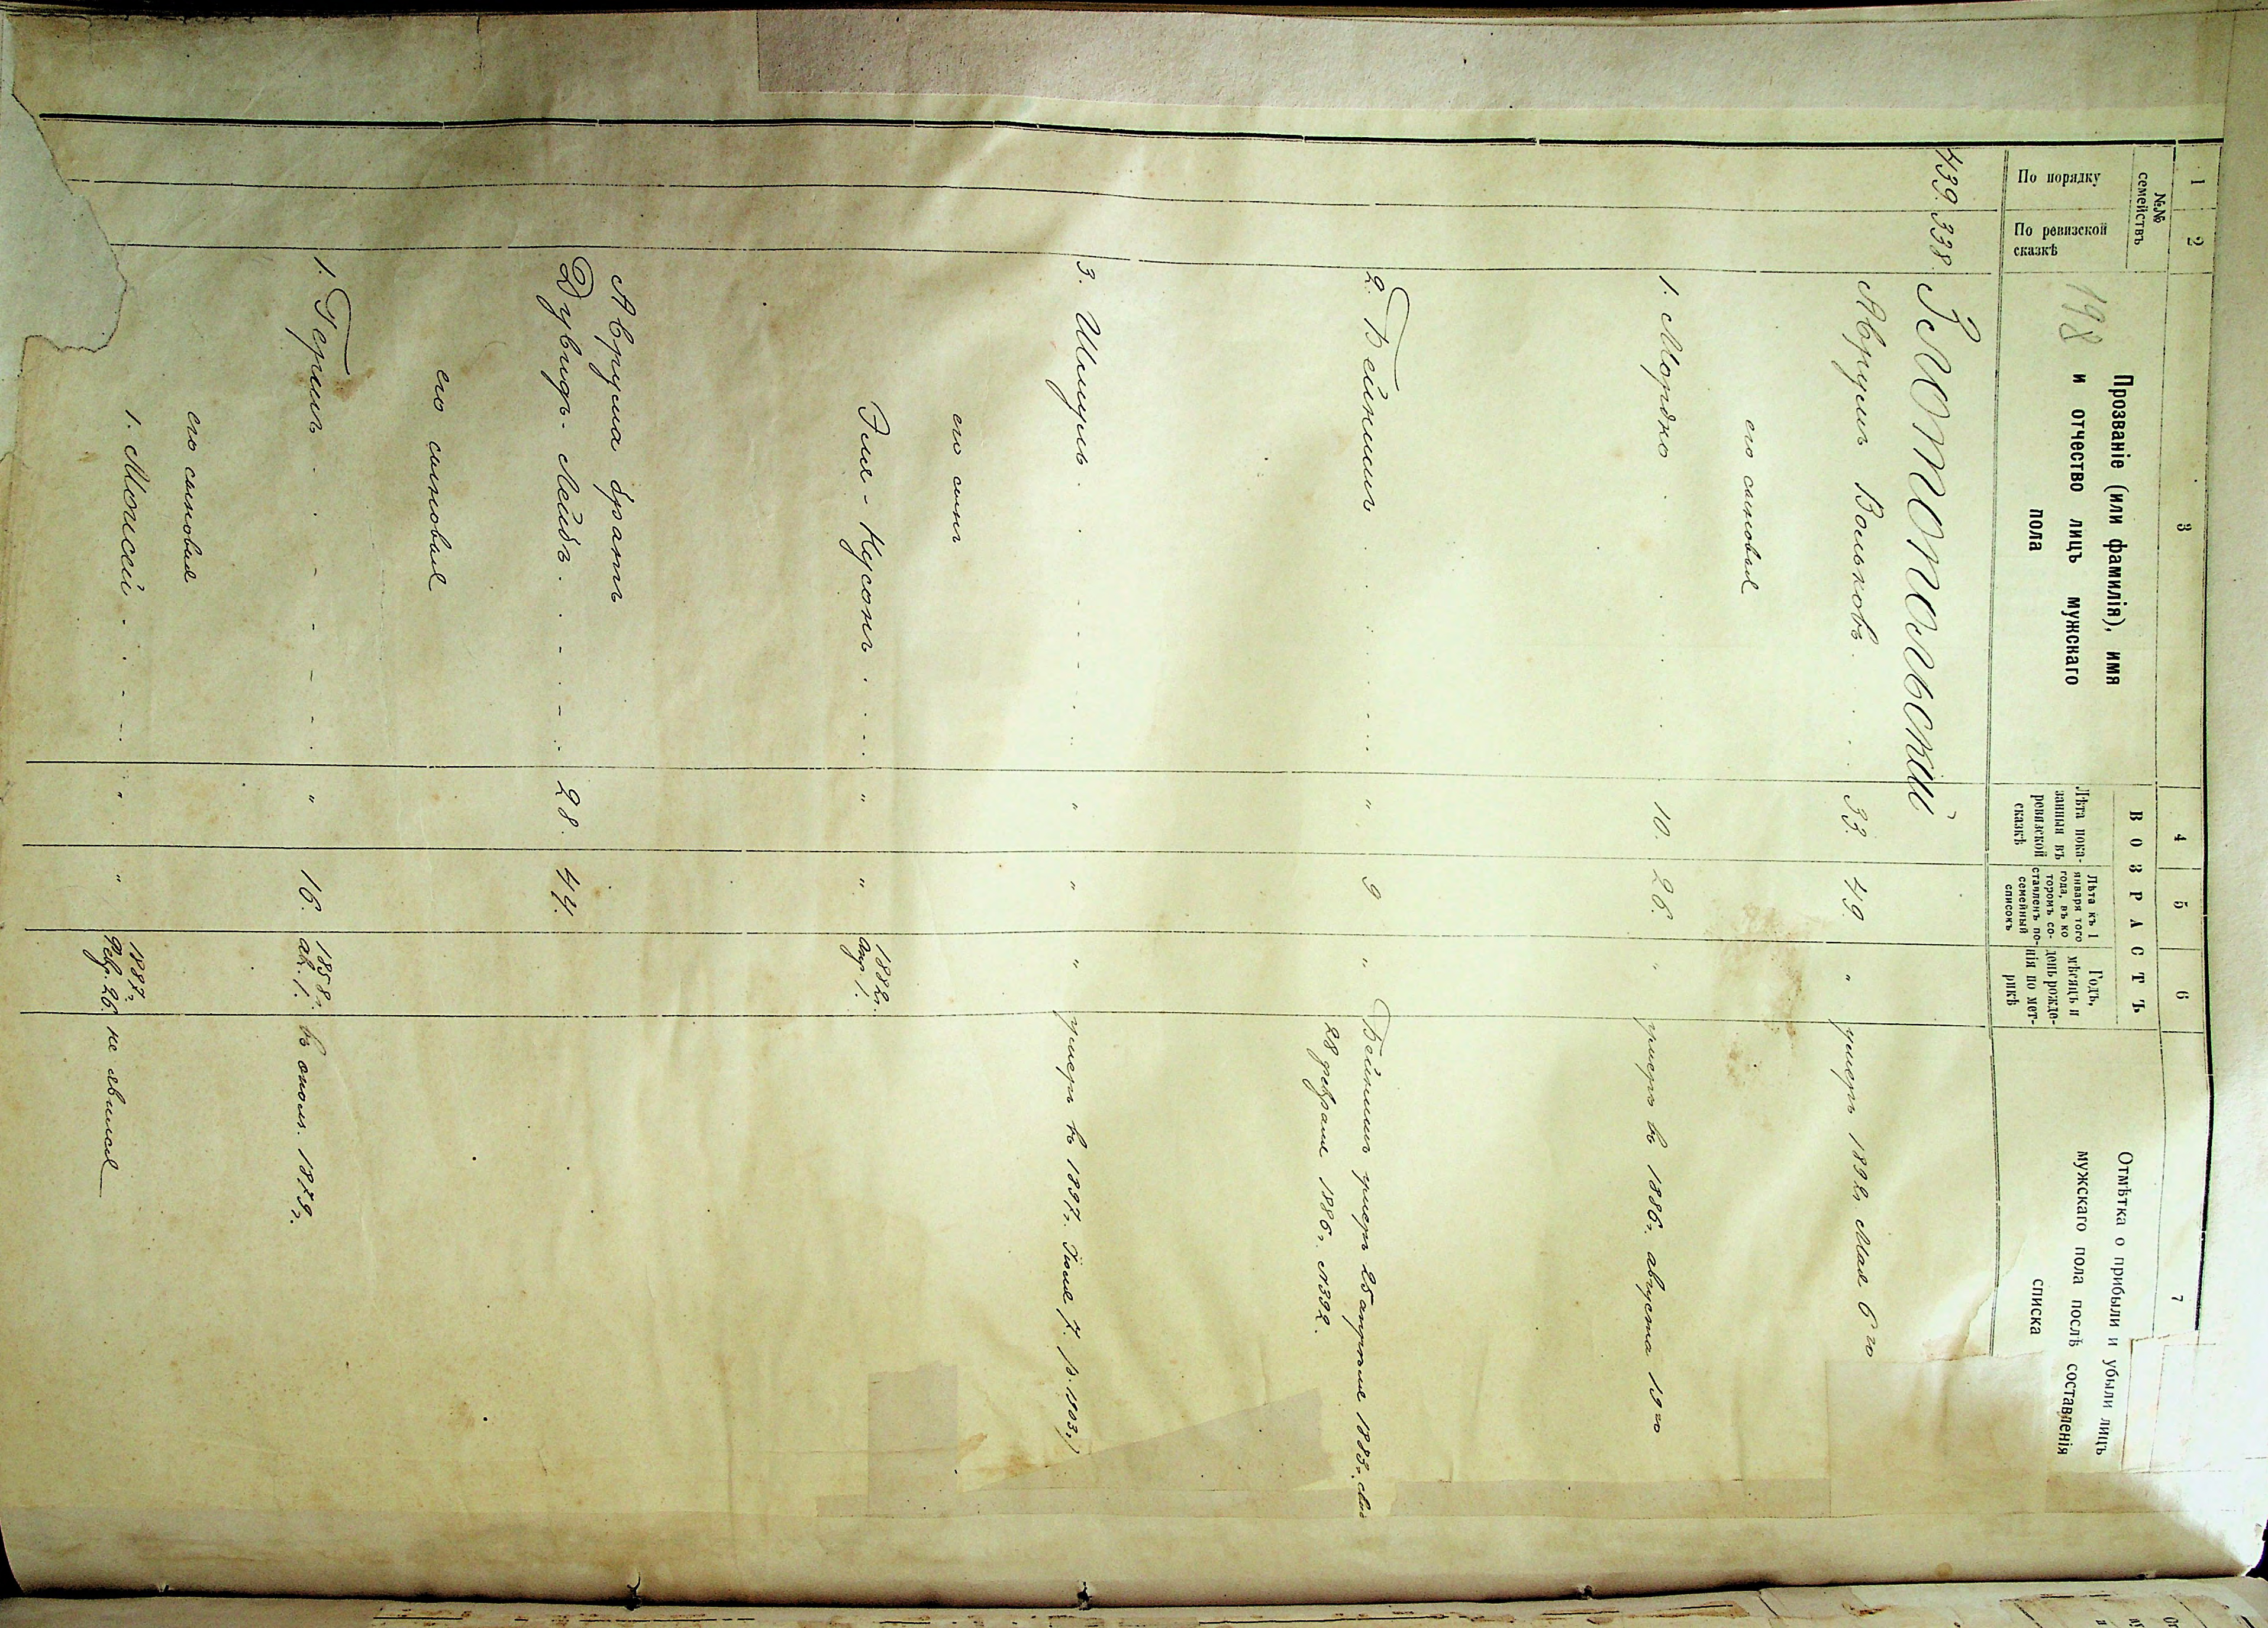 1 2 3 4 5 6 7
№№ семействъ
По порядку
По ревизской сказкѣ
Прозваніе (или фамилія), имя
и отчество лицъ мужскаго
пола
198
ВОЗРАСТЪ
Лѣта пока-
занныя въ
ревизской
сказкѣ
Лѣта къ 1
января того
года, въ ко
торомъ со-
ставленъ по-
семейный
списокъ
Годъ,
мѣсяцъ и
день рожде-
нія по мет-
рикѣ
Отмѣтка о прибыли и убыли лицъ
мужскаго пола послѣ составленія
списка
439. 338. Злотопольскій
Аврумъ Вольковъ . . . 33. 49. " умеръ 1892 г. Мая 6го
его сыновья
1. Мордко . . . . 10. 26. " умеръ въ 1886 г. августа 19го
2. Бейнишъ . . . . " 9 " Бейнишъ умеръ 25 апрѣля 1883 г.
28 февраля 1886 г. № 392.
3. Шмуль . . . . " " " умеръ въ 1897 г. Іюля 7. р. 1903 г.)
его сынъ
Эля-Нусонъ . . . " " 1882 г.
Апр. 1.
Аврума братъ
Дувидъ-Лейбъ . . . 28. 44.
его сыновья
1. Гершъ . . . . " 16. 1858 г. въ ополч. 1879 г.
ав. 1.
его сыновья
1. Моисей . . . " " 1887 г.
Февр. 26. не явился